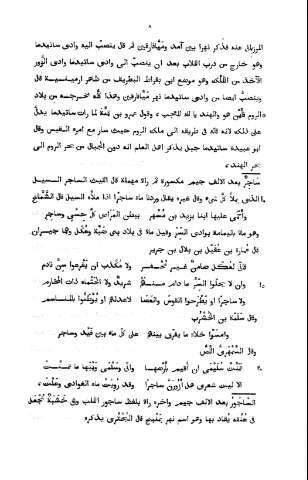 ٨
المرزبان هذه فذكر نهرا بين آمد وميّافارقين ثم قال ينصب اليه وادى ساتيدما
وهو خارج من درب الكلاب بعد ان ينصب الى وادى ساتيدما وادى الزور
الآخذ من الكلك وهو موضع ابن بقراط البطريق من ظاهر ارمينية قال
وينصب ايضا من وادى ساتيدما نهر ميّافارقين وهذا كله مخرجه من بلاد
الروم فاين هو والهند يا لله للعجب ، وقول عمرو بن قميئة لما رات ساتيدما يدل
على ذلك لانه قاله فى طريقه الى ملك الروم حيث سار مع امرء القيس وقال
ابو عبيدة ساتيدما جبل يذكر اهل العلم انه دون الجبال من بحر الروم الى
بحر الهند ،
ساجر بعد الالف جيم مكسورة ثم راء مهملة قال الليث الساجر السيل
الذى يملأ كل شىء وقال غيره يقال وردنا ماء ساجرا اذا ملأه السيل قال الشماخ
وأحمى عليها ابنا يزيد بن مسهر ببطن المراض كل حسى وساجر
وهو ماء باليمامة بوادى السر وقيل ماء فى بلاد بنى ضبة وعكل وهما جيران
قال عمارة بن عقيل بن بلال بن جرير
فانى لعكل ضامن غير مخفر ولا مكذب ان يقرعوا سن نادم
١٥ وان لا يحلوا السر ما دام منهم شريد ولا الخثماء ذات المخارم
ولا ساجرا او يطرحوا القوس والعصا لاعدائهم او يوطئوا بالمناسم
وقال سلمة بن الخرشب
وامسوا خلاء ما يفرق بينهم على كل ماء بين فيد وساجر
وقال السمهرى اللص
٢٠ تمنت سليمى ان اقيم بارضها وانى وسلمى ويبها ما تمنت
الا ليت شعرى هل أزورن ساجرا وقد رويت ماء الغوادى وعلت ،
الساجور بعد الالف جيم واخره راء بلفظ ساجور الكلب وهى خشبة تجعل
فى عنقه يقاد بها وهو اسم نهر بمنبج قال البحترى يذكره